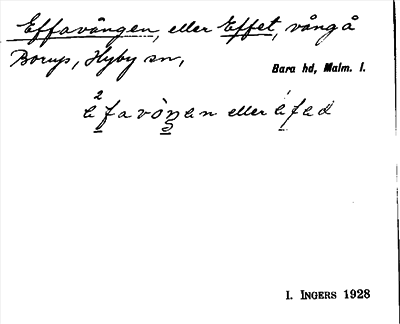 Effavången, eller Effet, vång å
Borup, Hyby sn,
Bara hd, Malm. l.
eller
I. INGERS 1928